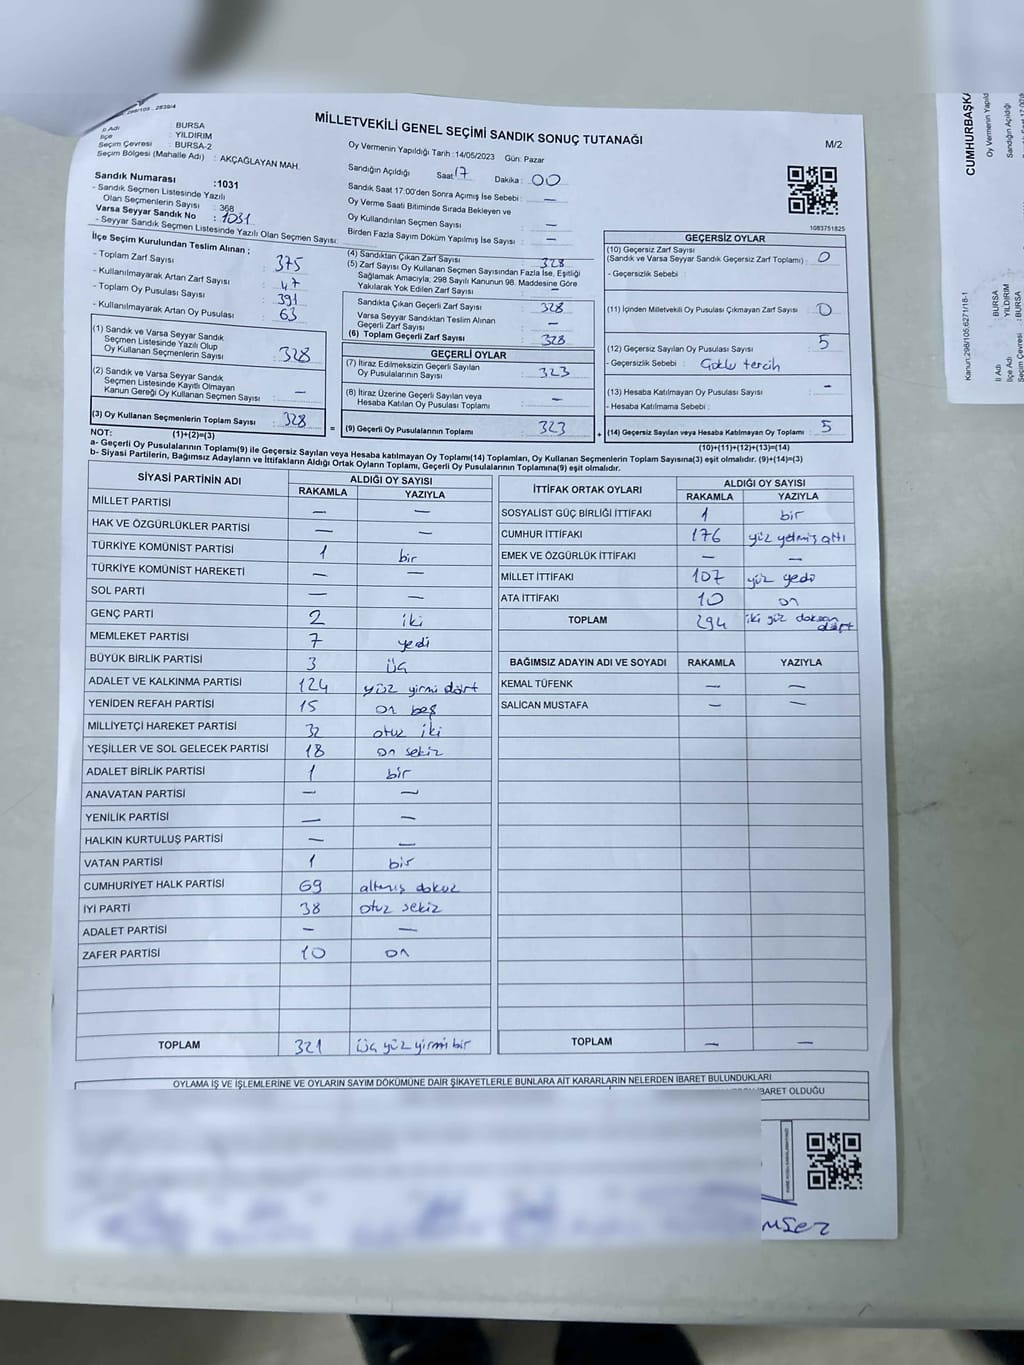 298/105 . 2839/4
İl Adı : BURSA
İlçe : YILDIRIM
Seçim Çevresi : BURSA-2
Seçim Bölgesi (Mahalle Adı) : AKÇAĞLAYAN MAH.
Sandık Numarası :1031
- Sandık Seçmen Listesinde Yazılı
Olan Seçmenlerin Sayısı : 368
Varsa Seyyar Sandık No : 1031
- Seyyar Sandık Seçmen Listesinde Yazılı Olan Seçmen Sayısı:
MİLLETVEKİLİ GENEL SEÇİMİ SANDIK SONUÇ TUTANAĞI
M/2
Oy Vermenin Yapıldığı Tarih :14/05/2023 Gün: Pazar
Sandığın Açıldığı Saat: 17 Dakika : 00
Sandık Saat 17:00'den Sonra Açımış İse Sebebi : —
Oy Verme Saati Bitiminde Sırada Bekleyen ve
Oy Kullandırılan Seçmen Sayısı : —
Birden Fazla Sayım Döküm Yapılmış İse Sayısı : —
1083751825
İlçe Seçim Kurulundan Teslim Alınan ;
- Toplam Zarf Sayısı : 375
- Kullanılmayarak Artan Zarf Sayısı : 47
- Toplam Oy Pusulası Sayısı : 391
- Kullanılmayarak Artan Oy Pusulası : 63
(1) Sandık ve Varsa Seyyar Sandık
Seçmen Listesinde Yazılı Olup
Oy Kullanan Seçmenlerin Sayısı : 328
(2) Sandık ve Varsa Seyyar Sandık
Seçmen Listesinde Kayıtlı Olmayan
Kanun Gereği Oy Kullanan Seçmen Sayısı : —
(3) Oy Kullanan Seçmenlerin Toplam Sayısı : 328
(4) Sandıktan Çıkan Zarf Sayısı : 328
(5) Zarf Sayısı Oy Kullanan Seçmen Sayısından Fazla İse, Eşitliği
Sağlamak Amacıyla; 298 Sayılı Kanunun 98. Maddesine Göre
Yakılarak Yok Edilen Zarf Sayısı : —
Sandıkta Çıkan Geçerli Zarf Sayısı : 328
Varsa Seyyar Sandıktan Teslim Alınan
Geçerli Zarf Sayısı : —
(6) Toplam Geçerli Zarf Sayısı : 328
GEÇERLİ OYLAR
(7) İtiraz Edilmeksizin Geçerli Sayılan
Oy Pusulalarının Sayısı : 323
(8) İtiraz Üzerine Geçerli Sayılan veya
Hesaba Katılan Oy Pusulası Toplamı : —
= (9) Geçerli Oy Pusulalarının Toplamı : 323
GEÇERSİZ OYLAR
(10) Geçersiz Zarf Sayısı
(Sandık ve Varsa Seyyar Sandık Geçersiz Zarf Toplamı) : 0
- Geçersizlik Sebebi :
(11) İçinden Milletvekili Oy Pusulası Çıkmayan Zarf Sayısı : 0
(12) Geçersiz Sayılan Oy Pusulası Sayısı : 5
- Geçersizlik Sebebi : Çoklu tercih
(13) Hesaba Katılmayan Oy Pusulası Sayısı : -
- Hesaba Katılmama Sebebi :
+ (14) Geçersiz Sayılan veya Hesaba Katılmayan Oy Toplamı : 5
NOT: (1)+(2)=(3)
(10)+(11)+(12)+(13)=(14)
a- Geçerli Oy Pusulalarının Toplamı(9) ile Geçersiz Sayılan veya Hesaba katılmayan Oy Toplamı(14) Toplamları, Oy Kullanan Seçmenlerin Toplam Sayısına(3) eşit olmalıdır. (9)+(14)=(3)
b- Siyasi Partilerin, Bağımsız Adayların ve İttifakların Aldığı Ortak Oyların Toplamı, Geçerli Oy Pusulalarının Toplamına(9) eşit olmalıdır.
SİYASİ PARTİNİN ADI ALDIĞI OY SAYISI
RAKAMLA YAZIYLA
MİLLET PARTİSİ — —
HAK VE ÖZGÜRLÜKLER PARTİSİ — —
TÜRKİYE KOMÜNİST PARTİSİ 1 bir
TÜRKİYE KOMÜNİST HAREKETİ — —
SOL PARTİ — —
GENÇ PARTİ 2 iki
MEMLEKET PARTİSİ 7 yedi
BÜYÜK BİRLİK PARTİSİ 3 üç
ADALET VE KALKINMA PARTİSİ 124 yüz yirmi dört
YENİDEN REFAH PARTİSİ 15 on beş
MİLLİYETÇİ HAREKET PARTİSİ 32 otuz iki
YEŞİLLER VE SOL GELECEK PARTİSİ 18 on sekiz
ADALET BİRLİK PARTİSİ 1 bir
ANAVATAN PARTİSİ — —
YENİLİK PARTİSİ — —
HALKIN KURTULUŞ PARTİSİ — —
VATAN PARTİSİ 1 bir
CUMHURİYET HALK PARTİSİ 69 altmış dokuz
İYİ PARTİ 38 otuz sekiz
ADALET PARTİSİ — —
ZAFER PARTİSİ 10 on
TOPLAM 321 üç yüz yirmi bir
İTTİFAK ORTAK OYLARI ALDIĞI OY SAYISI
RAKAMLA YAZIYLA
SOSYALİST GÜÇ BİRLİĞİ İTTİFAKI 1 bir
CUMHUR İTTİFAKI 176 yüz yetmiş altı
EMEK VE ÖZGÜRLÜK İTTİFAKI — —
MİLLET İTTİFAKI 107 yüz yedi
ATA İTTİFAKI 10 on
TOPLAM 294 iki yüz doksan dört
BAĞIMSIZ ADAYIN ADI VE SOYADI RAKAMLA YAZIYLA
KEMAL TÜFENK — —
SALİCAN MUSTAFA — —
TOPLAM — —
OYLAMA İŞ VE İŞLEMLERİNE VE OYLARIN SAYIM DÖKÜMÜNE DAİR ŞİKAYETLERLE BUNLARA AİT KARARLARIN NELERDEN İBARET BULUNDUKLARI
İBARET OLDUĞU
CUMHURBAŞKA
Oy Vermenin Yapıld
Sandığın Açıldığı
Kanun:298/105.6271/18-1
İl Adı : BURSA
İlçe Adı : YILDIRIM
: BURSA